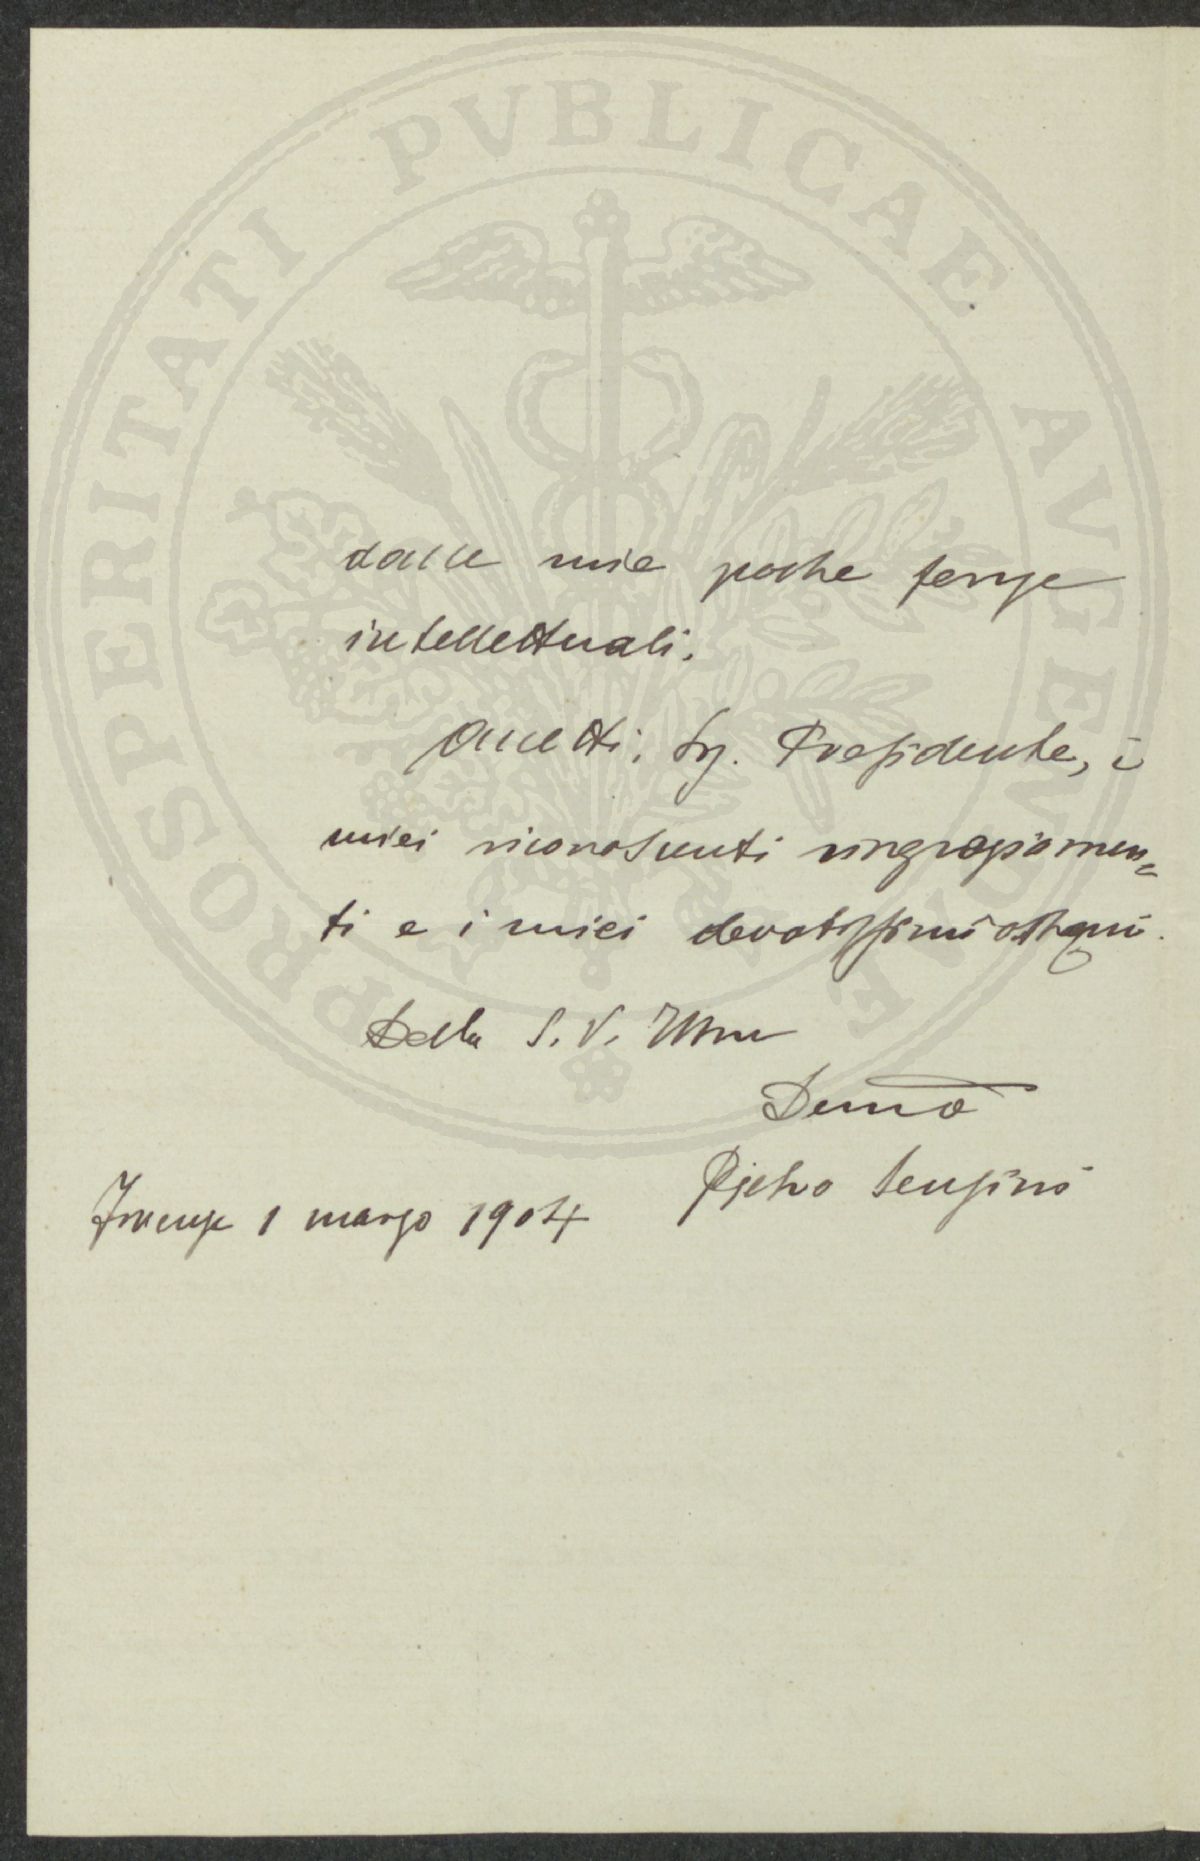 dalle mie poche forze
intellettuali.
Accetti, Sig. Presidente, i
miei riconoscenti ringraziamen=
ti e i miei devotissimi ossequi.
Della S. V. Illma
Devmo
Firenze 1 marzo 1904
PROSPERITATI PVBLICAE AVGENDAE